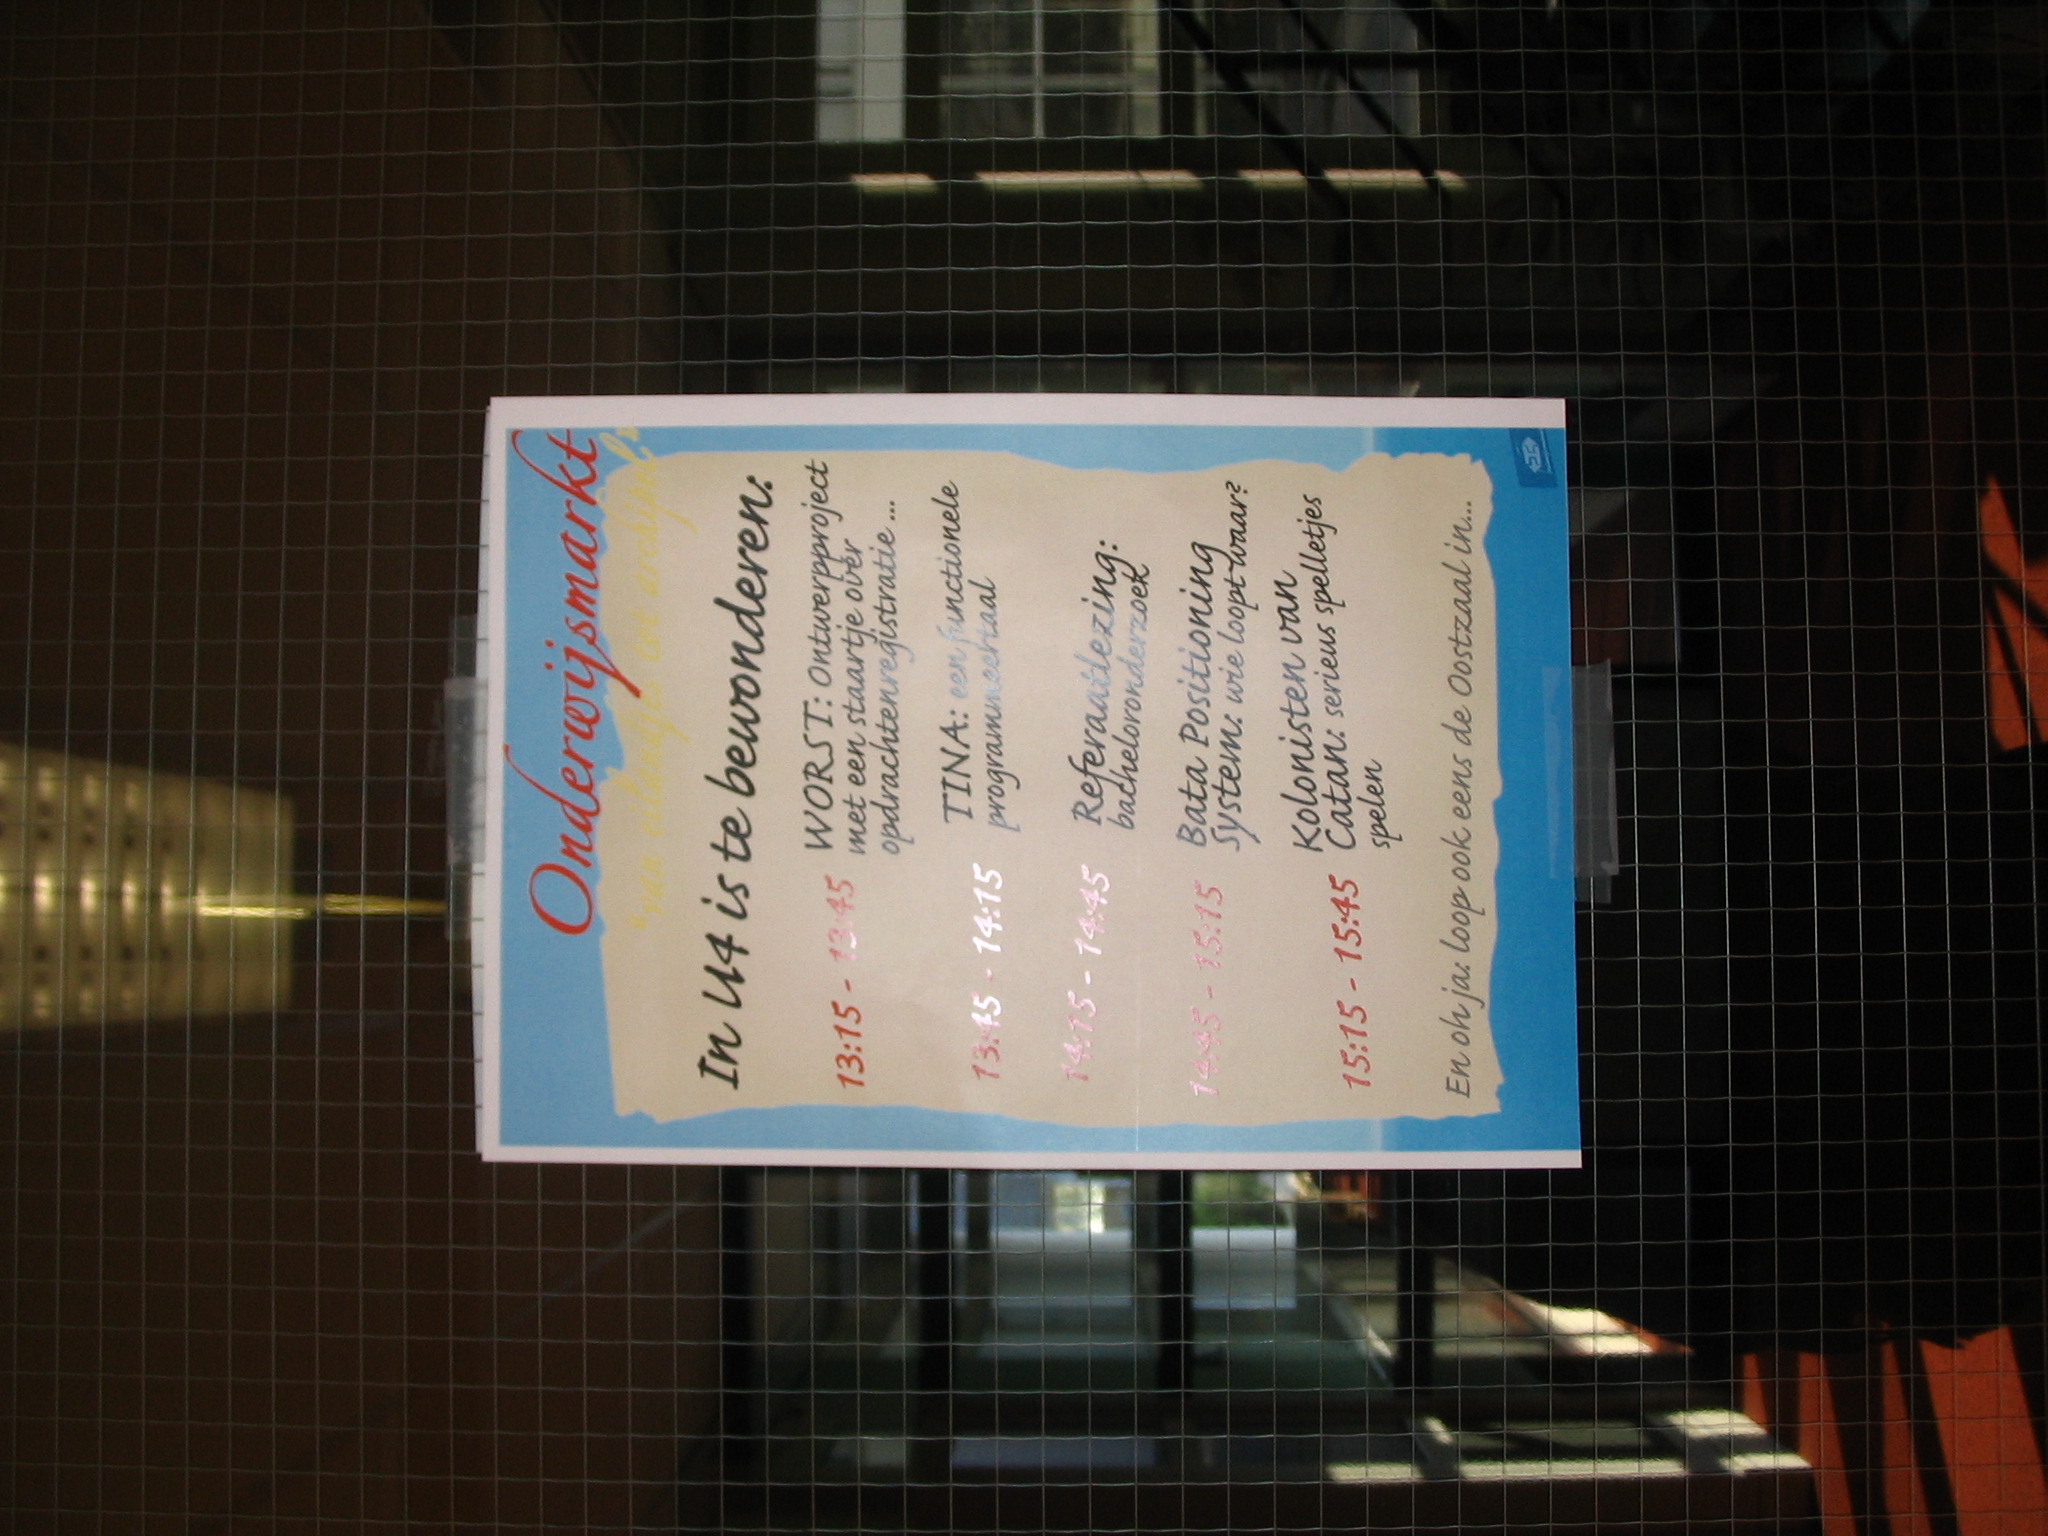 Onderwijsmarkt
"van eilandjes tot archipel"
In U4 is te bewonderen:
13:15 - 13:45 WORST: Ontwerpproject
met een staartje over
opdrachtenregistratie ...
13:45 - 14:15 TINA: een functionele
programmeertaal
14:15 - 14:45 Referaatlezing:
bacheloronderzoek
14:45 - 15:15 Bata Positioning
System: wie loopt waar?
15:15 - 15:45 Kolonisten van
Catan: serieus spelletjes
spelen
En oh ja: loop ook eens de Oostzaal in...